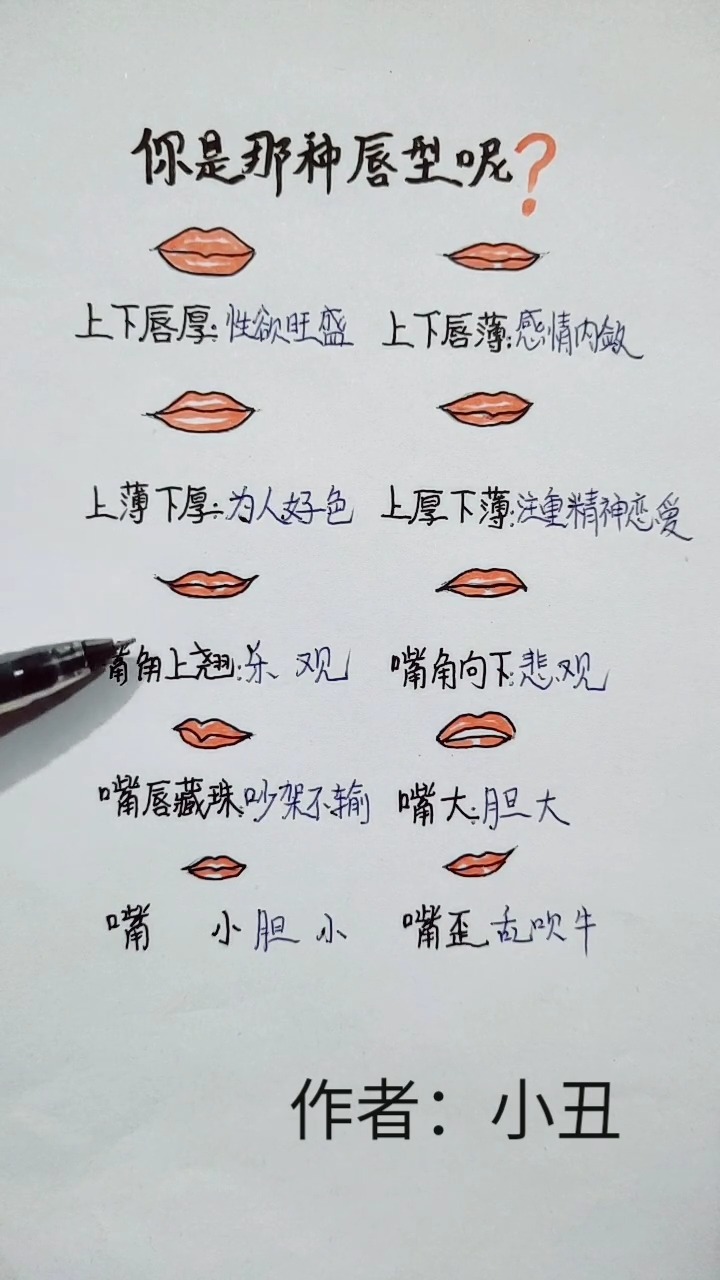 你是那种唇型呢？
上下唇厚:性欲旺盛
上下唇薄:感情内敛
上薄下厚:为人好色
上厚下薄:注重精神恋爱
嘴角上翘:乐观
嘴角向下:悲观
嘴唇藏珠:吵架不输
嘴大:胆大
嘴小胆小
嘴歪乱吹牛
作者：小丑